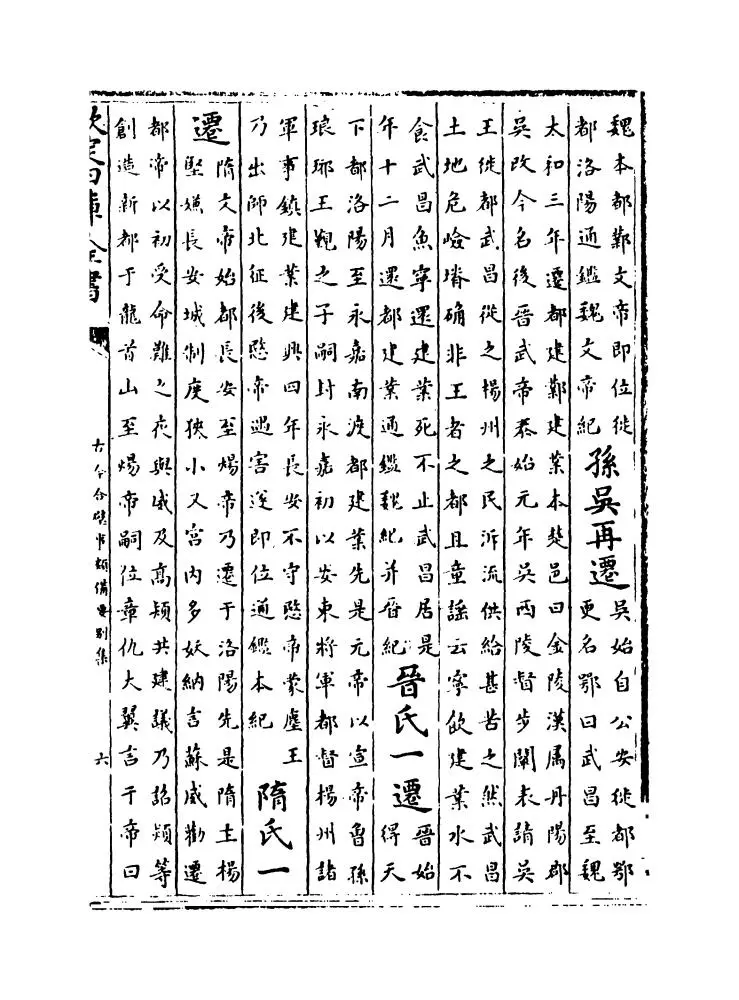 魏本都鄴文帝即位徙
都洛陽通鑑魏文帝紀
孫吳再遷
吳始自公安徙都鄂
更名鄂曰武昌至魏
太和三年遷都建鄴建業本楚邑曰金陵漢属丹陽郡
吳改今名後晉武帝泰始元年吳西陵督步闡表請吳
王徙都武昌從之楊州之民泝流供給甚苦之然武昌
土地危嶮塉确非王者之都且童謠云寧飲建業水不
食武昌魚寧還建業死不止武昌居是
年十二月還都建業通鑑魏紀并晉紀
晉氏一遷
晉始
得天
下都洛陽至永嘉南渡都建業先是元帝以宣帝魯孫
琅琊王覲之子嗣封永嘉初以安東將軍都督楊州諸
軍事鎮建業建興四年長安不守愍帝蒙塵王
乃出師北征後愍帝遇害遂即位通鑑本紀
隋氏一
遷
隋文帝始都長安至煬帝乃遷于洛陽先是隋主楊
堅嫌長安城制度狹小又宮内多妖納言蘇威勸遷
都帝以初受命難之夜與威及高熲共建議乃詔熲等
創造新都于龍首山至煬帝嗣位章仇大翼言于帝曰
欽定四庫全書
古今合璧事類備要別集
六